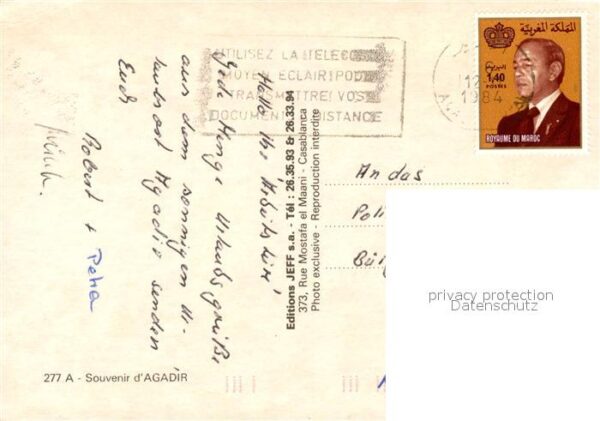 Hallo Ihr
Jede Menge Urlaubsgrüße
aus dem sonnigen Ur-
laubsort Agadir senden
Euch
Robert + Petra
An das
Poli
Bür
Editions JEFF s.a. - Tél : 26.35.93 & 26.33.94
373, Rue Mostafa el Maani - Casablanca
Photo exclusive - Reproduction interdite
277 A - Souvenir d'AGADIR
UTILISEZ LA TELECO
MOYEN ECLAIR POU
TRANSMETTRE VOS
DOCUMENT DISTANCE
12
1984
المملكة المغربية
البريد
1,40
POSTES
ROYAUME DU MAROC
privacy protection
Datenschutz